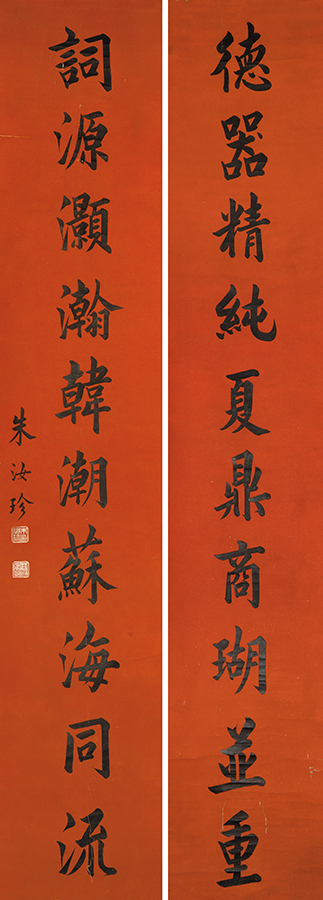 德器精純夏鼎商瑚並重
詞源灝瀚韓潮蘇海同流
朱汝珍